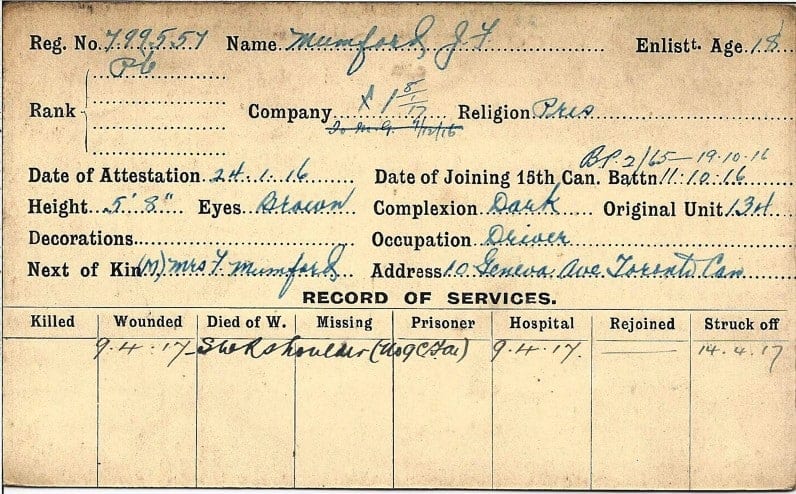 Reg. No. 799557 Name Mumford J F Enlistt. Age. 18
Pte
Rank Company 1 8/1/17 Religion Pres
To M.G. 4/12/16
BP. 2/65 — 19.10.16
Date of Attestation 24.1.16 Date of Joining 15th Can. Battn 11.10.16
Height 5' 8" Eyes Brown Complexion Dark Original Unit 134
Decorations Occupation Driver
Next of Kin (M) Mrs F. Mumford Address 10 Geneva Ave Toronto Can
RECORD OF SERVICES.
Killed Wounded Died of W. Missing Prisoner Hospital Rejoined Struck off
9.4.17 — SW R Shoulder (No 9 C.F.A.) 9.4.17. — 14.4.17